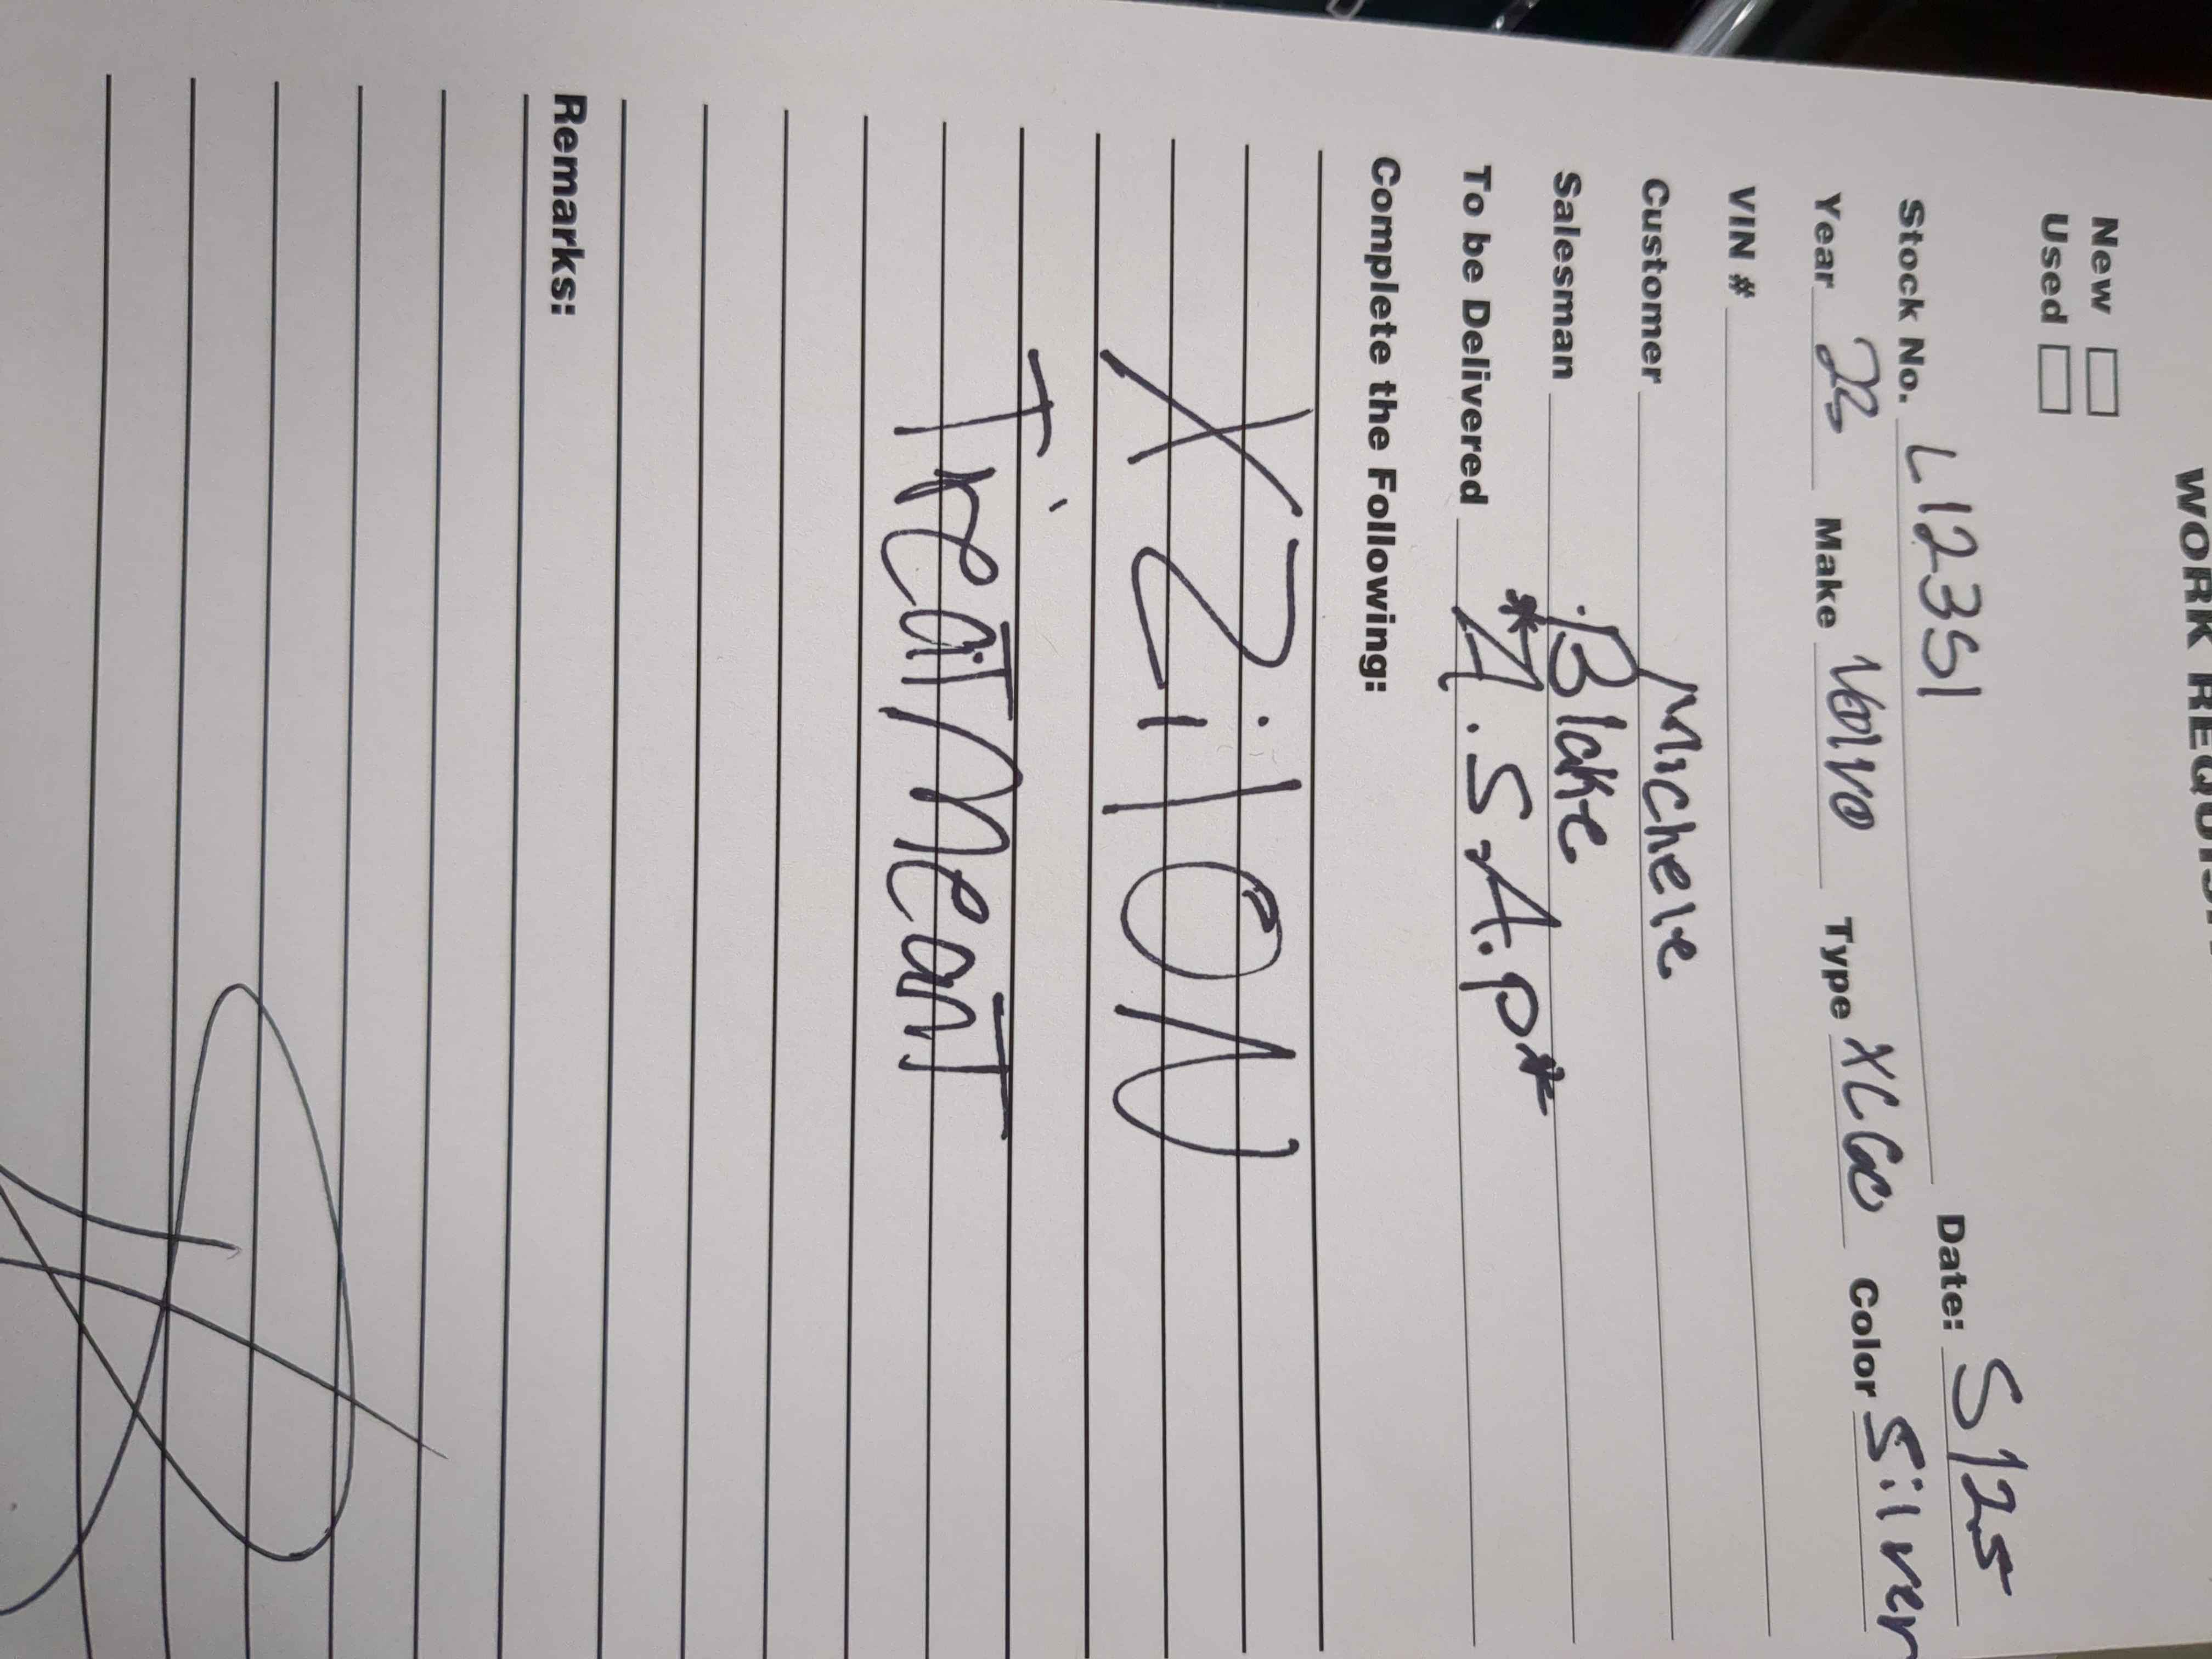 WORK REQUIS
New
Used
Stock No. L12351 Date: 5/25
Year 23 Make Volvo Type XC60 Color Silver
VIN #
Customer Michele
Salesman Blake
To be Delivered *A.S.A.P*
Complete the Following:
XZilON
TreaTMeanT
Remarks: